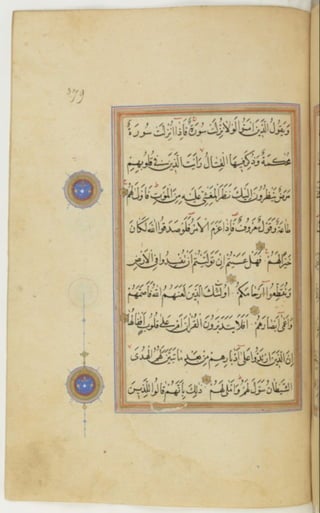 وَيَقُولُ الَّذِينَ آمَنُوا لَوْلَا نُزِّلَتْ سُورَةٌ فَإِذَا أُنْزِلَتْ سُورَةٌ
مُحْكَمَةٌ وَذُكِرَ فِيهَا الْقِتَالُ رَأَيْتَ الَّذِينَ فِي قُلُوبِهِمْ
مَرَضٌ يَنْظُرُونَ إِلَيْكَ نَظَرَ الْمَغْشِيِّ عَلَيْهِ مِنَ الْمَوْتِ فَأَوْلَى لَهُمْ
طَاعَةٌ وَقَوْلٌ مَعْرُوفٌ فَإِذَا عَزَمَ الْأَمْرُ فَلَوْ صَدَقُوا اللَّهَ لَكَانَ
خَيْرًا لَهُمْ فَهَلْ عَسَيْتُمْ إِنْ تَوَلَّيْتُمْ أَنْ تُفْسِدُوا فِي الْأَرْضِ
وَتُقَطِّعُوا أَرْحَامَكُمْ أُولَئِكَ الَّذِينَ لَعَنَهُمُ اللَّهُ فَأَصَمَّهُمْ
وَأَعْمَى أَبْصَارَهُمْ أَفَلَا يَتَدَبَّرُونَ الْقُرْآنَ أَمْ عَلَى قُلُوبٍ أَقْفَالُهَا
إِنَّ الَّذِينَ ارْتَدُّوا عَلَى أَدْبَارِهِمْ مِنْ بَعْدِ مَا تَبَيَّنَ لَهُمُ الْهُدَى
الشَّيْطَانُ سَوَّلَ لَهُمْ وَأَمْلَى لَهُمْ ذَلِكَ بِأَنَّهُمْ قَالُوا لِلَّذِينَ